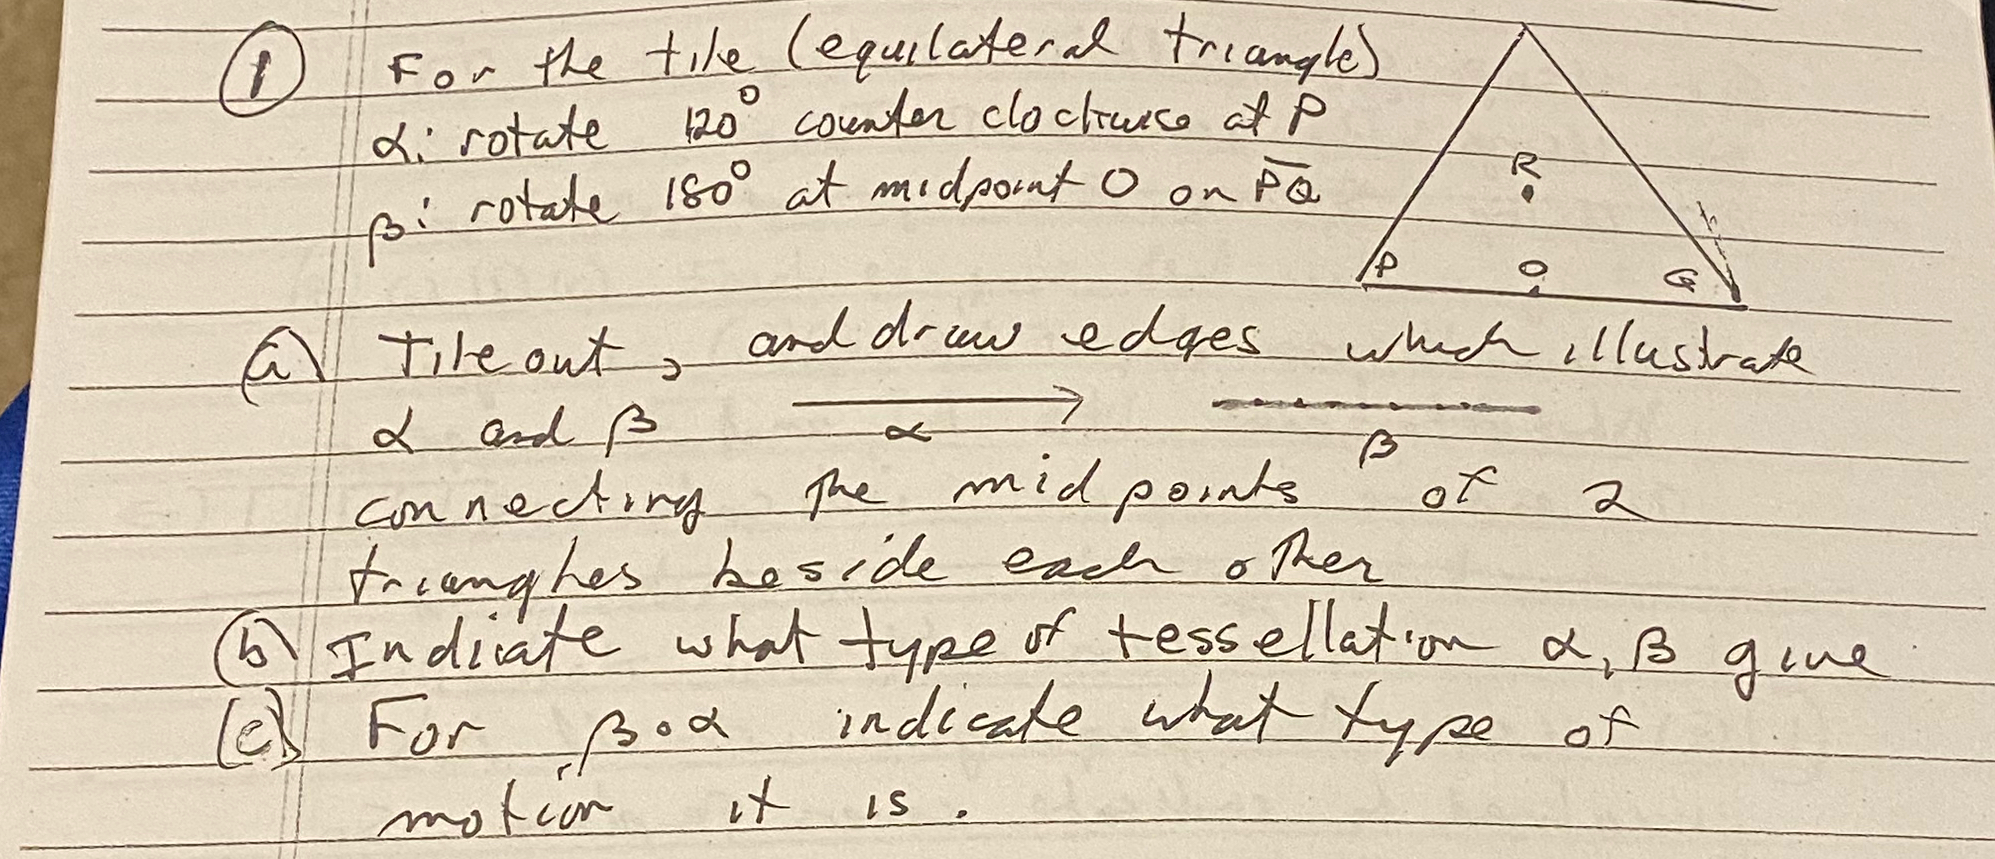 ① For the tile (equilateral triangle)
α: rotate 120° counter clockwise at P
β: rotate 180° at midpoint O on P̅Q̅
R
P O Q
(a) Tile out, and draw edges which illustrate
α and β → α β
connecting the midpoints of 2
triangles beside each other
(b) Indicate what type of tessellation α, β give
(c) For β∘α indicate what type of
motion it is.